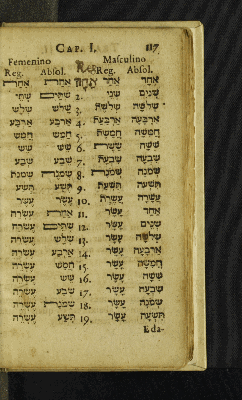 CAP. I. 117
Femenino Masculino
Reg. Absol. Reg. Absol.
שתי שתים 2. שני שנים
שלש שלש 3. שלשת שלשה
ארבע ארבע 4. ארבעת ארבעה
חמש חמש 5. חמשת חמשה
שש שש 6. ששת ששה
שבע שבע 7. שבעת שבעה
שמנה שמנה 8. שמנת שמנה
תשע תשע 9. תשעת תשעה
עשר עשר 10. עשרת עשרה
עשרה אחת 11. עשר אחד
עשרה שתים 12. עשר שנים
עשרה שלש 13. עשר שלשה
עשרה ארבע 14. עשר ארבעה
עשרה חמש 15. עשר חמשה
עשרה שש 16. עשר ששה
עשרה שבע 17. עשר שבעה
עשרה שמנה 18. עשר שמנה
עשרה תשע 19. עשר תשעה
Eda-